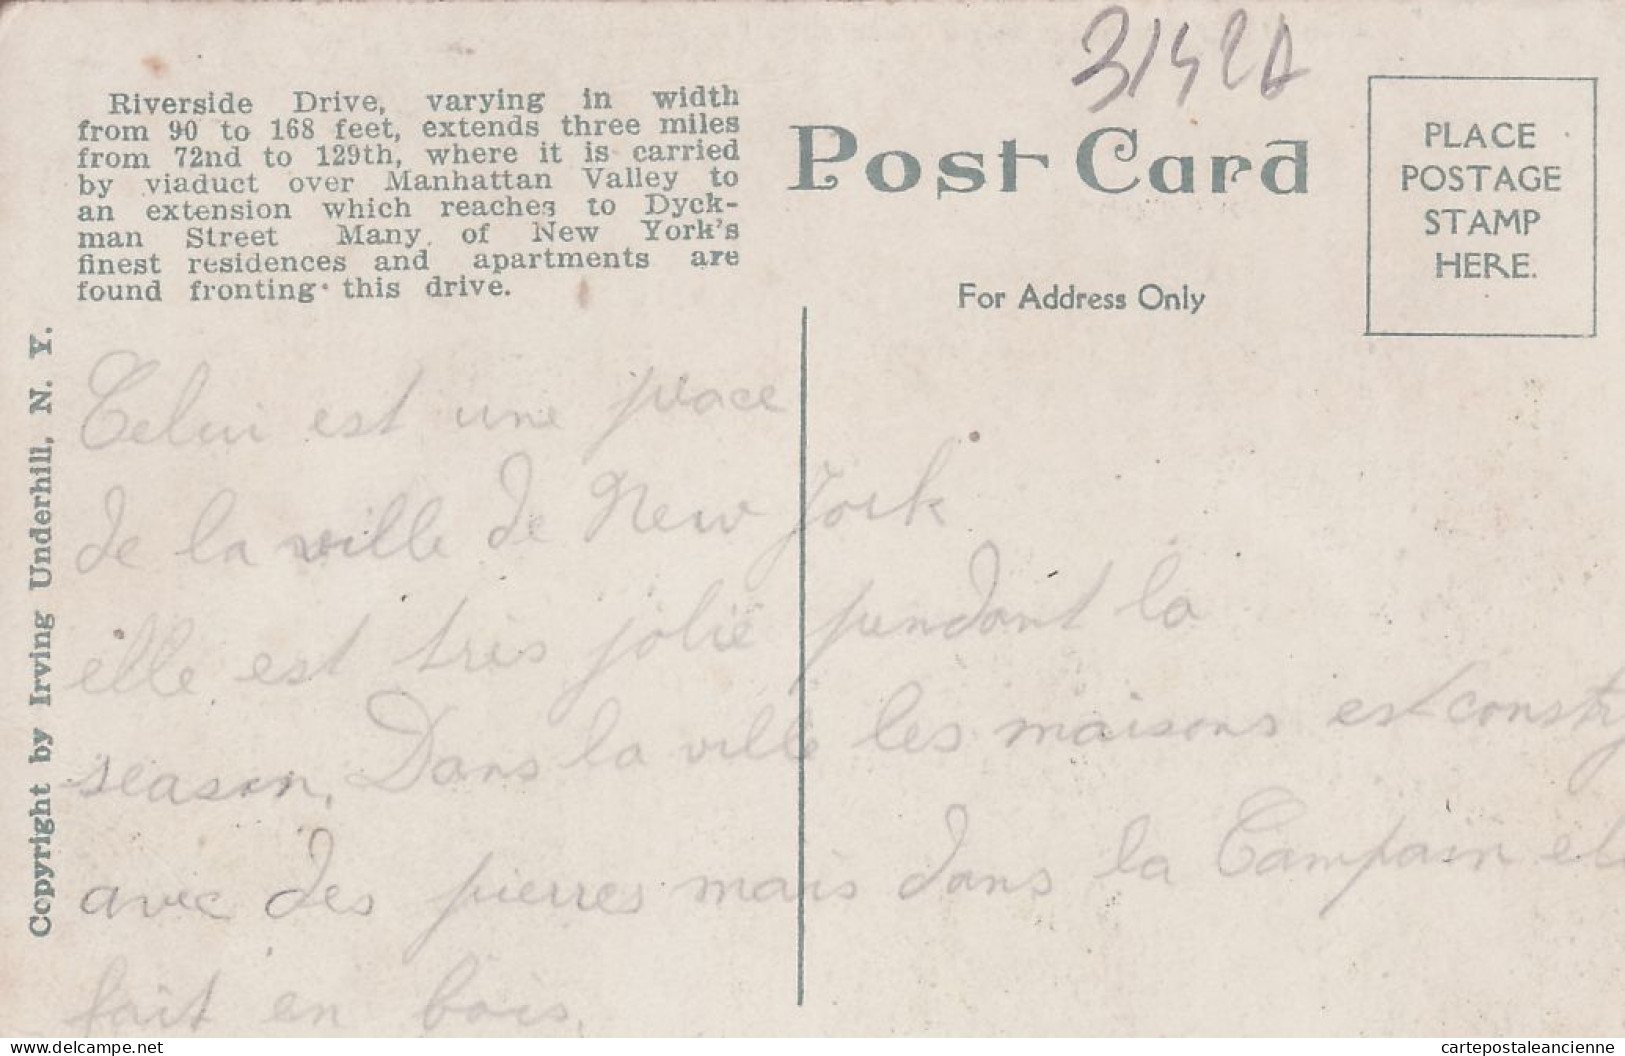 31428
Riverside Drive, varying in width
from 90 to 168 feet, extends three miles
from 72nd to 129th, where it is carried
by viaduct over Manhattan Valley to
an extension which reaches to Dyck-
man Street Many of New York's
finest residences and apartments are
found fronting this drive.
Post Card
For Address Only
PLACE
POSTAGE
STAMP
HERE.
Copyright by Irving Underhill, N. Y.
Celui est une place
de la ville de New York
elle est très jolie pendant la
season. Dans la ville les maisons est
avec des pierres mais dans la Campain
fait en bois.
www.delcampe.net
cartepostaleancienne